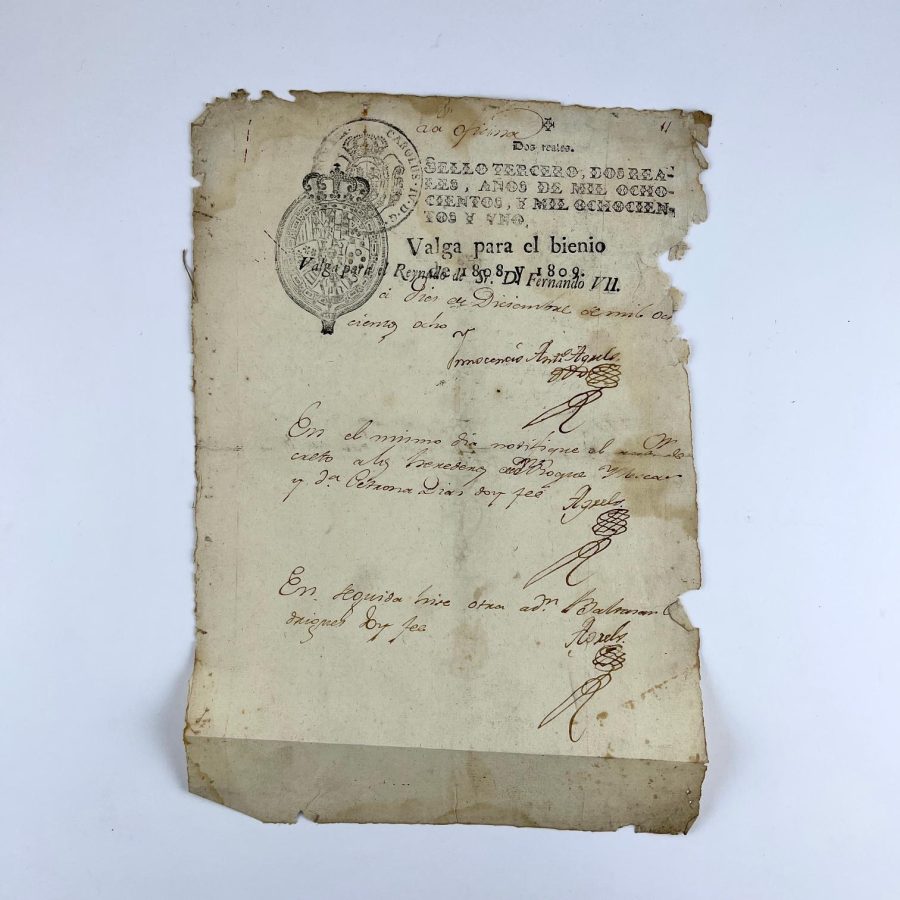 Dos reales.
CAROLUS. IV. D. G.
SELLO TERCERO, DOS REA-
LES, AÑOS DE MIL OCHO-
CIENTOS, Y MIL OCHOCIEN-
TOS Y UNO.
Valga para el bienio
de 1808 y 1809.
Valga para el Reynado de Sr. D. Fernando VII.
á dos de Diciembre de mil och
cientos ocho
Innocencio Anto Agrelo
En el mismo dia notifique el de
creto a los herederos Roque
y Da Petrona Dias doy fee
Agrelo
En seguida hise otra a Dn Baltasar
driguez doy fee
Agrelo